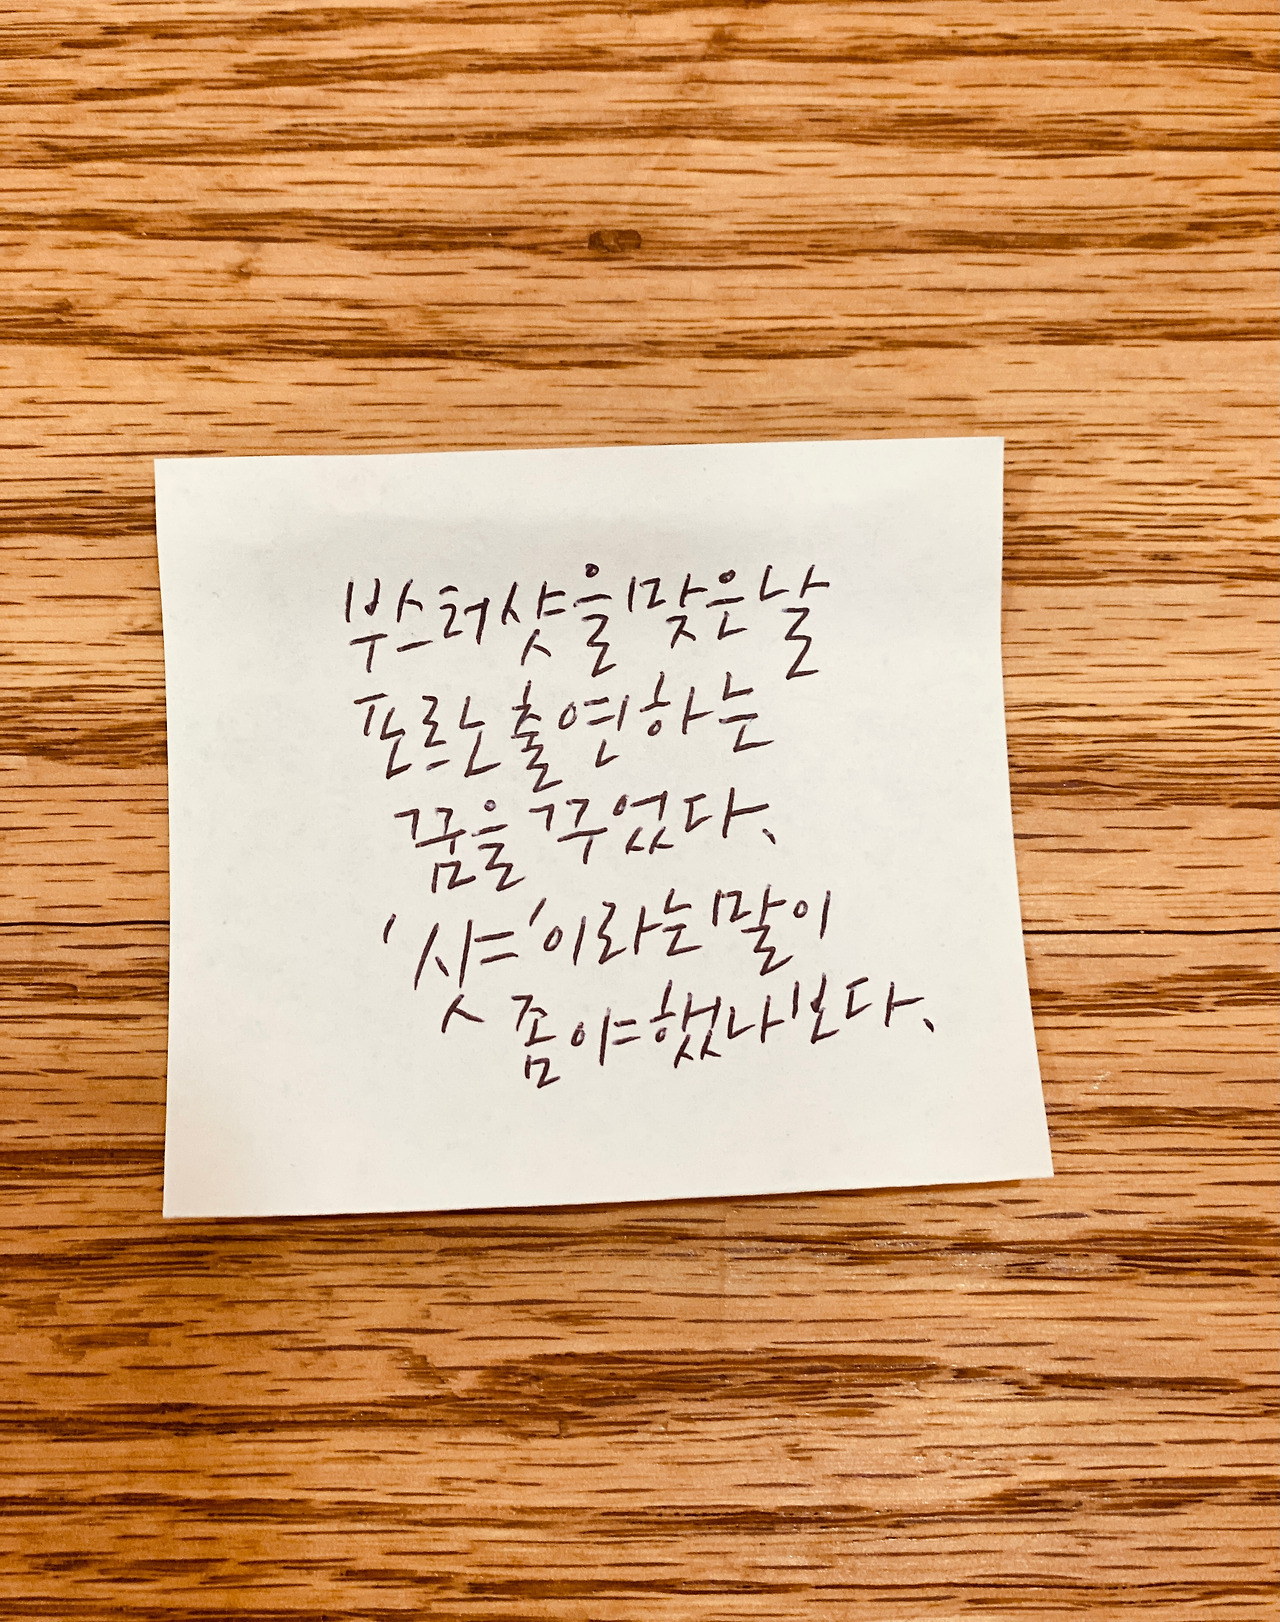 부스터샷을 맞은 날
포르노 출연하는
꿈을 꾸었다.
'샷'이라는 말이
좀 야했나보다.